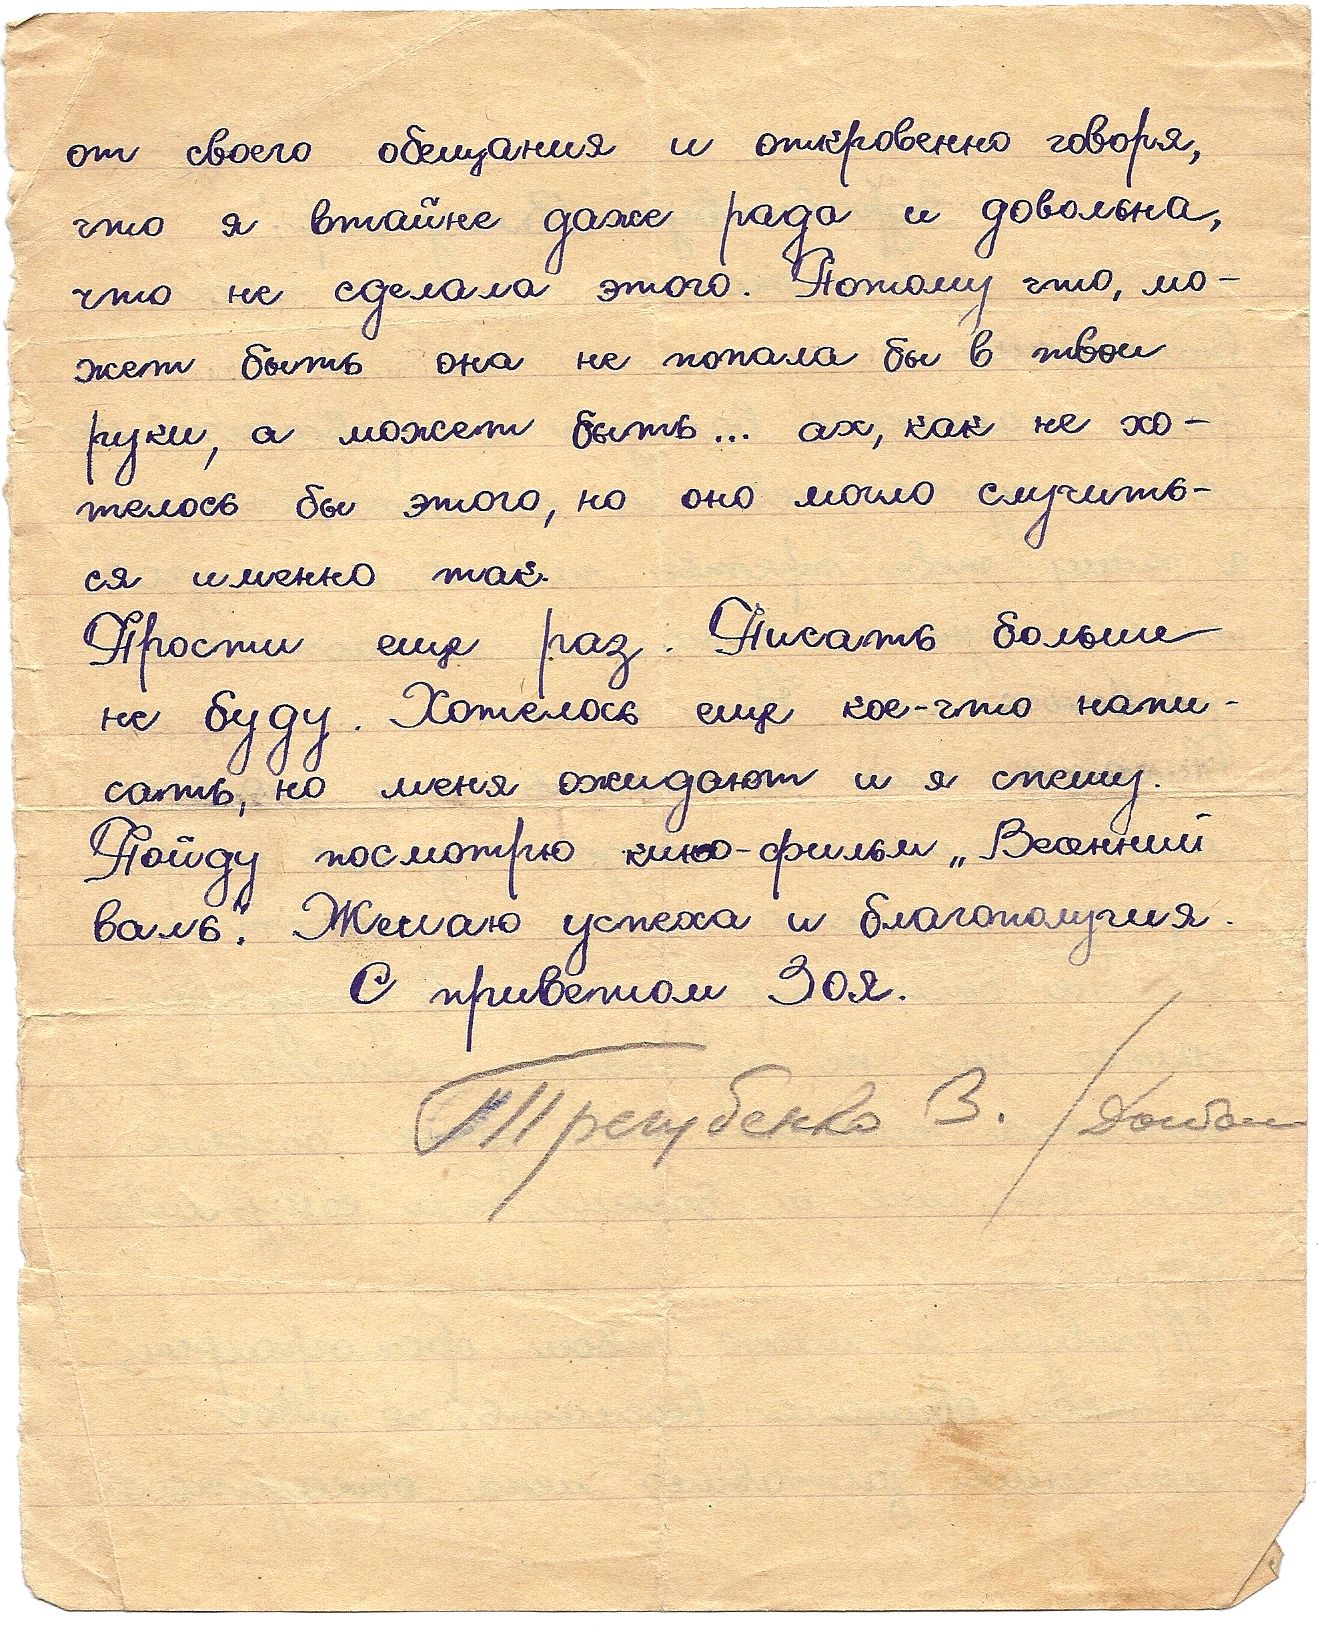 от своего обещания и откровенно говоря,
что я втайне даже рада и довольна,
что не сделала этого. Потому что, мо-
жет быть она не попала бы в твои
руки, а может быть... ах, как не хо-
телось бы этого, но оно могло случить-
ся именно так.
Прости еще раз. Писать больше
не буду. Хотелось еще кое-что напи-
сать, но меня ожидают и я спешу.
Пойду посмотрю кино-фильм „Весенний
валь". Желаю успеха и благополучия.
С приветом Зоя.
Трегубенко З.